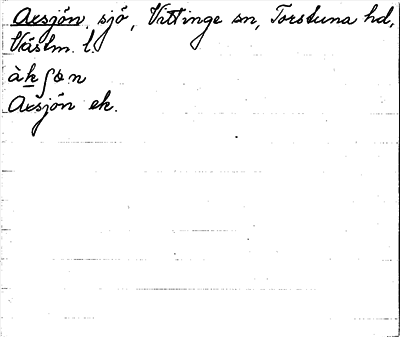 Axsjön, sjö, Vittinge sn, Torstuna hd,
Västm. l.
àk̲ʃɷn
Axsjön ek.